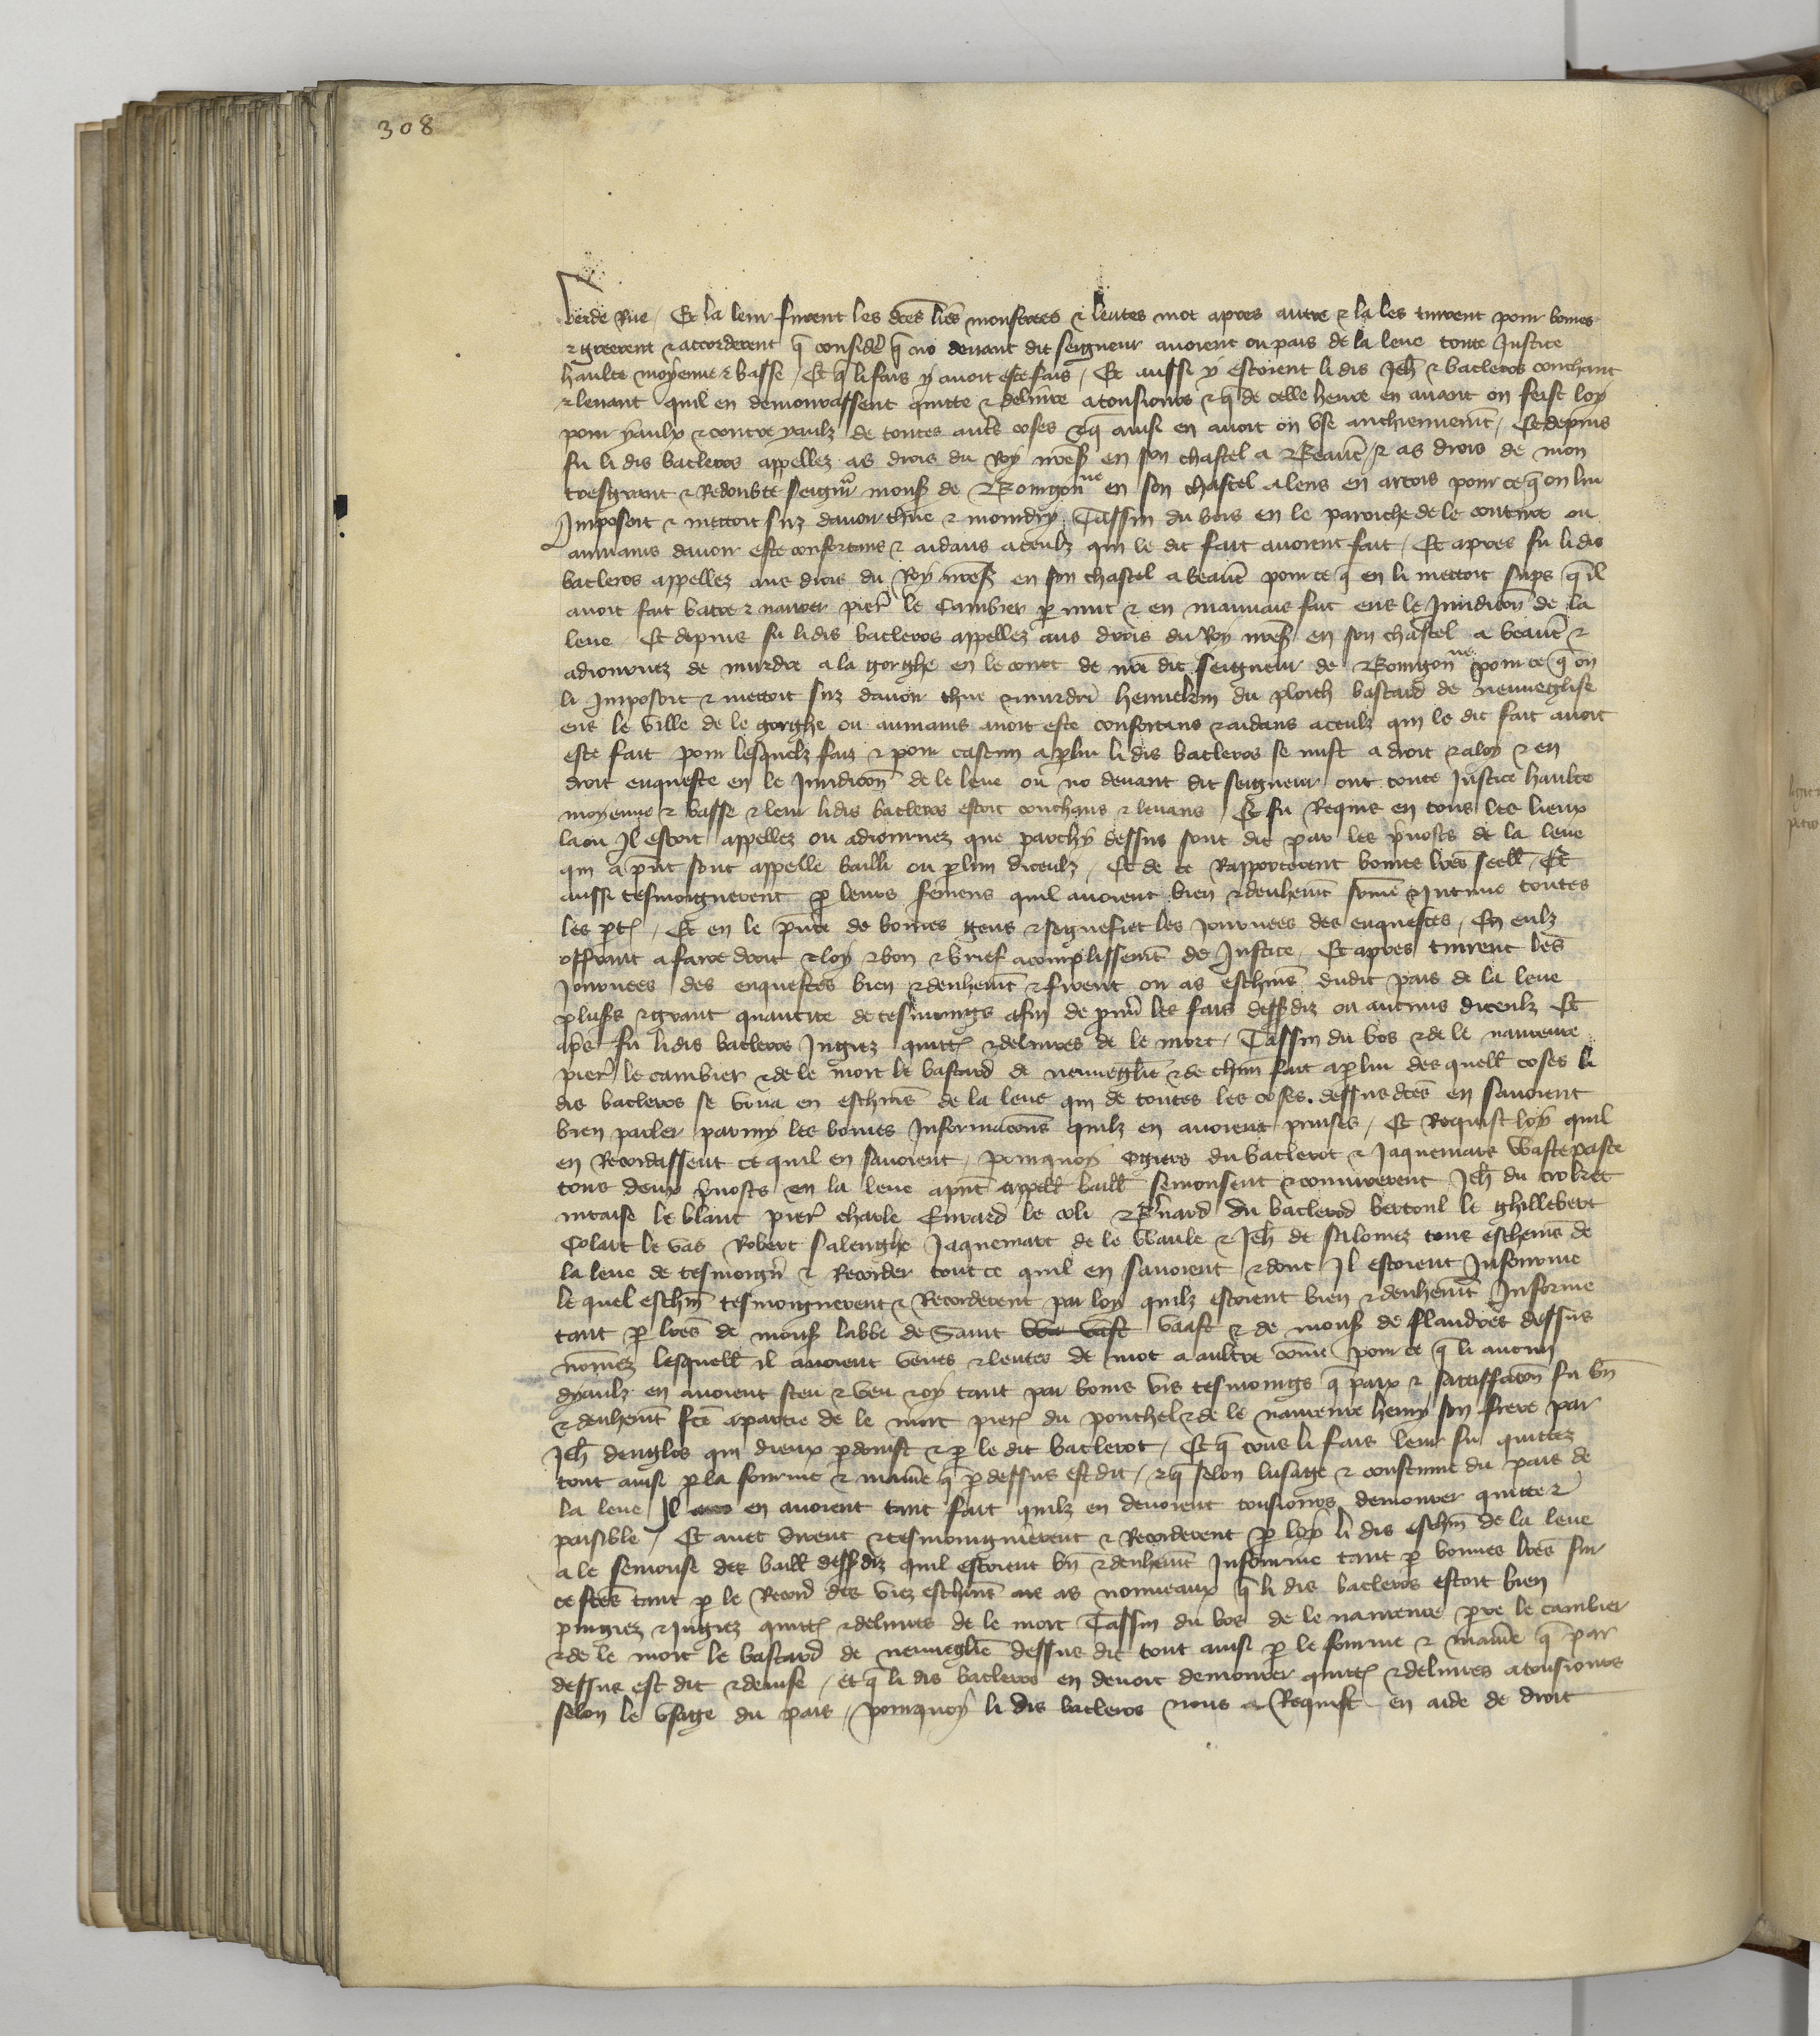 308
verde Rue / Et la leur furent les dces lres monstrees & leutes mot apres autre & la les tinrent pour bonnes
& greerent & accorderent q consider q no devant dit seigneur avoient ou pais de la leue toute Justice
haulte moyenne & basse / Et q li fais y avoit este fais / Et aussi y estoient li dis Jeh & bacleros couchant
& levant quil en demourassent quitte & delivre a tousiours & q de celle heure en avant on feist loy
pour yaulx & contre yaulz de toutes autres coses & q ainsi en avoit on use anchiennemt / Et depuis
fu li dis bacleros appellez as drois du Roy nres en son chastel a Beauc / & as drois de mon
tresgrant & Redoubte seignr mons de Bourgonne en son chastel a lens en artois pour ce q on lui
Imposoit & mettoit suz davoir thue & mourdry Tassin du bois en le paroiche de le couture ou
aumains davoir este confortans & aidans a ceulz qui le dit fait avoient fait / Et apres fu li dis
bacleros appellez aus drois du Roy nres en son chastel a beauc pour ce q en li mettoit sups q il
avoit fait batre & navrer pier le Cambier p nuit & en mauvais fait ens le Juridicon de la
leue Et depuis fu li dis bacleros appellez aus drois du Roy nres en son chastel a beauc &
adiournez de murdre a la gorghe en le court de nre dit seigneur de Bourgonne pour ce q on
li Imposoit & mettoit suz davoir thue & murdri hennekem du ploich bastard de neuveglise
ens le ville de le gorghe ou aumains avoit este confortans & aidans a ceulz qui le dit fait avoit
este fait pour lesquelz faiz & pour cascun a plui li dis bacleros se mist a droit & a loy & en
droit enqueste en le Juridicon de le leue ou no devant dit seigneur ont toute Justice haulte
moyenne & basse & leur li dis bacleros estoit couchans & levans / Et fu Requis en tous les lieux
la ou Il estoit appellez ou adiournez que parchy dessus sont dit par les pvosts de la leue
qui a pnt sont appelle bailli ou plun diceulz / Et de ce Rapporterent bonnes lres seell Et
aussi tesmoignerent p leurs semens quil avoient bien & deuhemt some & Intime toutes
les pt / Et en le pnce de bonnes gens & segnefiet les Journees des enquestes / En eulz
offrant a faire droit & loy & bon & brief acomplissemt de Justice / Et apres tinrent les
Journees des enquestes bien & deuhemt & firent ou as eschvis dudit pais de la leue
pluss & grant quantite de tesmoings afin de pnr les fais dessdiz ou aucuns diceulz Et
aps fu li dis bacleros Jugiez quitt & delivres de le mort / Tassin du bos & de le navreure
pier le cambier & de le mort le bastard de neuveglie & de chun fait a plui des quell coses li
dis bacleros se vou a en eschvis de la leue qui de toutes les coses dessus dces en savoient
bien parler parmy les bonnes Informacons quilz en avoient prinses / Et Requist loy quil
en Recordassent ce quil en savoient / pourquoy Ogiers du baclerot & Jaquemars Wastepaste
tous deux pvosts en la leue a pnt appell baill semonsent & coniurerent Jeh du crokret
mraise le blanc pier charle Euvard le coli & Bnard du baclerod bertoul le ghillebert
Colart le vas Robert salenghe Jaquemart de le Waule & Jeh de salomez tous eschevis de
la leue de tesmoign & Recorder tout ce quil en savoient & dont Il estoient Informe
le quel eschvi tesmoignerent & Recorderent par loy quilz estoient bien & deuhemt Informe
tant p lres de mons labbe de Saint vaast & de mons de flandres dessus
nomez lesquell il avoient veues & leutes de mot a aultre come pour ce q li aucun
dyaulz en avoient sceu & veu & oy tant par bons vis tesmoings q paix & satiffacon fu bn
& deuhemt fce a partie de le mort pier du ponchel & de le navreure henry son frere par
Jeh denglos qui dieux pdoinst & p le dit baclerot / Et q tous li fais leur fu quittez
tout ainsi p la fourme & maniere q p dessus est dit / & q selon lusage & coustume du pais de
la leue Il en avoient tant fait quilz en devoient tousiours demourer quitte &
paisible / Et avec dirent & tesmoingnerent & Recorderent p loy li dis eschvi de la leue
a le semonse des baill dessdiz quil estoient bn & deuhemt Informe tant p bonnes lres sur
ce fces tant p le Recod des viez eschvis as nouveaux q li dis bacleros estoit bien
purgiez & Jugiez quitt & delivres de le mort Tassin du bos de le navreure pre le cambier
& de le mort le bastard de neuveglie dessus dit tout ainsi p le fourme & maniere q par
dessus est dit & devise / et q li dis bacleros en devoit demourer quitt & delivres a tousiours
selon le usage du pais / pourquoy li dis bacleros nous a Requist en aide de droit